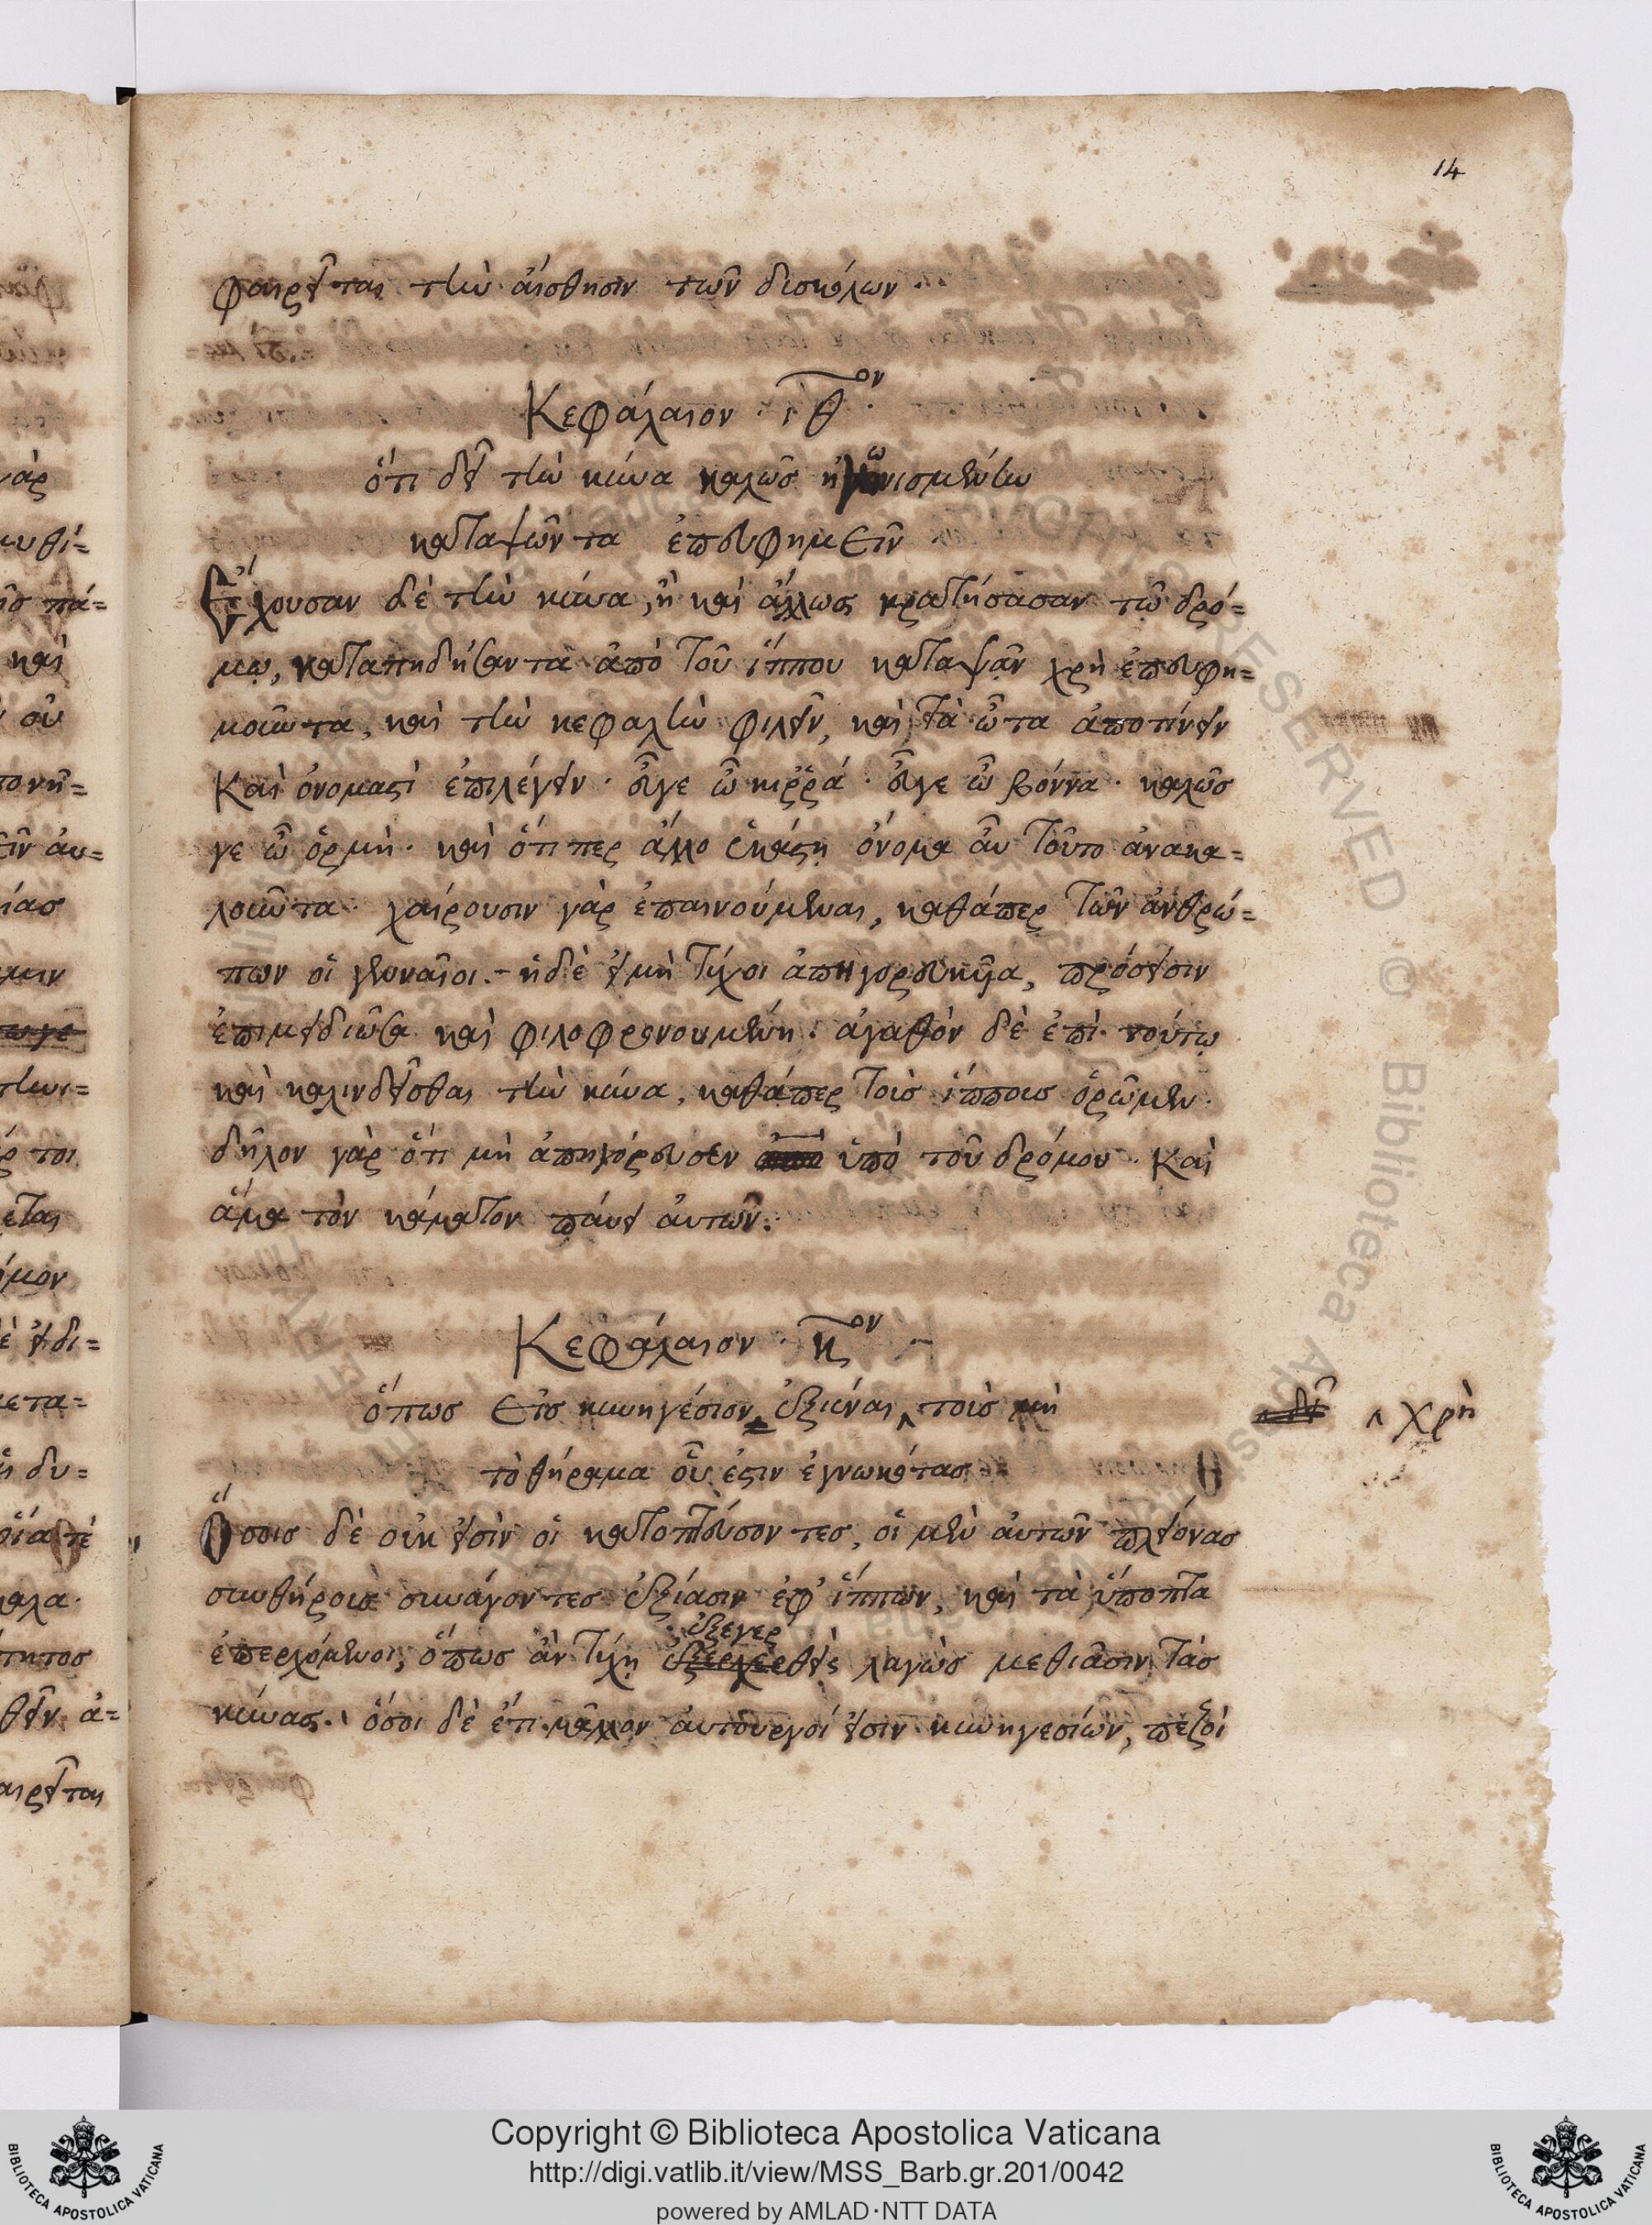 14
φαιρεῖται τὴν αἴσθησιν τῶν δισκόλων.
Κεφάλαιον · ιθ^ον ·
ὅτι δεῖ τὴν κύνα καλῶς ἠγωνισμένην
καταψῶντα ἐπευφημεῖν
Ἑλοῦσαν δὲ τὴν κύνα, ἢ καὶ ἄλλως κρατήσασαν τῷ δρό=
μῳ, καταπηδήσαντα ἀπὸ τοῦ ἵππου καταψᾶν χρὴ ἐπευφη=
μοῦντα, καὶ τὴν κεφαλὴν φιλεῖν, καὶ τὰ ὦτα ἀποτίνειν
Καὶ ὀνομαστὶ ἐπιλέγειν · εὖγε ὦ κιῤῥά · εὖγε ὦ βόννα · καλῶς
γε ὦ ὁρμὴ · καὶ ὅτι περ ἄλλο ἑκάστῃ ὄνομα ἀν τοῦτο ἀνακα=
λοῦντα · χαίρουσιν γὰρ ἐπαινούμεναι, καθάπερ τῶν ἀνθρώ=
πων οἱ γενναῖοι. - ἡ δὲ εἰ μὴ τύχοι ἀπηγορευκυῖα, πρόσεισιν
ἐπιμειδιῶσα καὶ φιλοφρονουμένη. ἀγαθὸν δὲ ἐπὶ τούτῳ
καὶ καλινδεῖσθαι τὴν κύνα, καθάπερ τοὺς ἵππους ὁρῶμεν ·
δῆλον γὰρ ὅτι μὴ ἀπηγόρευσεν ἀπὸ ὑπὸ τοῦ δρόμου · Καὶ
ἅμα τὸν κάματον παύει αὐτῶν.
Κεφάλαιον · κ^ον · -
ὅπως εἰς κυνηγέσιον ἐξιέναι ‸ τοὺς μὴ
δεῖ ‸ χρὴ
τὸ θήραμα οὗ ἐστιν ἐγνωκότας
Ὅσοις δὲ οὐκ εἰσὶν οἱ κατοπτεύσοντες, οἱ μὲν αὐτῶν πλείονας
συνθήρους συνάγοντες ἐξίασιν ἐφ᾽ ἵππων, καὶ τὰ ὕποπτα
ἐξεγερ
ἐπερχόμενοι, ὅπως ἂν τύχῃ ἐξερχερθεὶς λαγὼς μεθιᾶσιν τὰς
κύνας. ὅσοι δὲ ἔτι μᾶλλον αὐτουργοί εἰσιν κυνηγεσίων, πεζοὶ
Copyright © Biblioteca Apostolica Vaticana
http://digi.vatlib.it/view/MSS_Barb.gr.201/0042
powered by AMLAD·NTT DATA
BIBLIOTECA APOSTOLICA VATICANA
BIBLIOTECA APOSTOLICA VATICANA